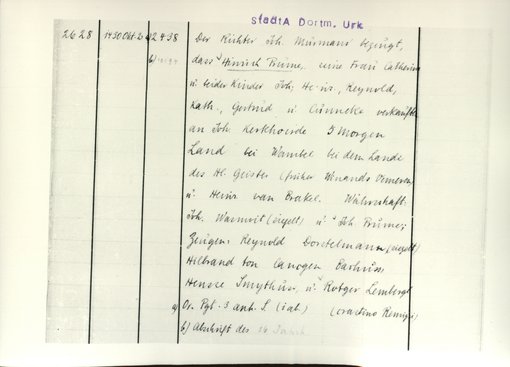 StadtA Dortm. Urk
2628 1430 Okt 2 a) 2438
b)
Der Richter Joh. Murmann bezeugt,
dass Hinrich Prume, seine Frau Catherina
u. beider Kinder Joh, Heinr, Reynold,
Kath., Gertrud u. Cunneke verkauften
an Joh. Kerkhoerde 5 Morgen
Land bei Wambel bei dem Lande
des Hl. Geister (früher Winands
u. Heinr van Brakel. Währschaft:
Joh. Warmut (siegelt) u. Joh. Prume;
Zeugen: Reynold Dorstelmann (siegelt)
Hilbrand ton
Henne Smythus, u. Rotger Lemberg
a) Or. Pgt. 3 anh. S. (lat) (crastino Remigii)
b) Abschrift des 16 Jahrh